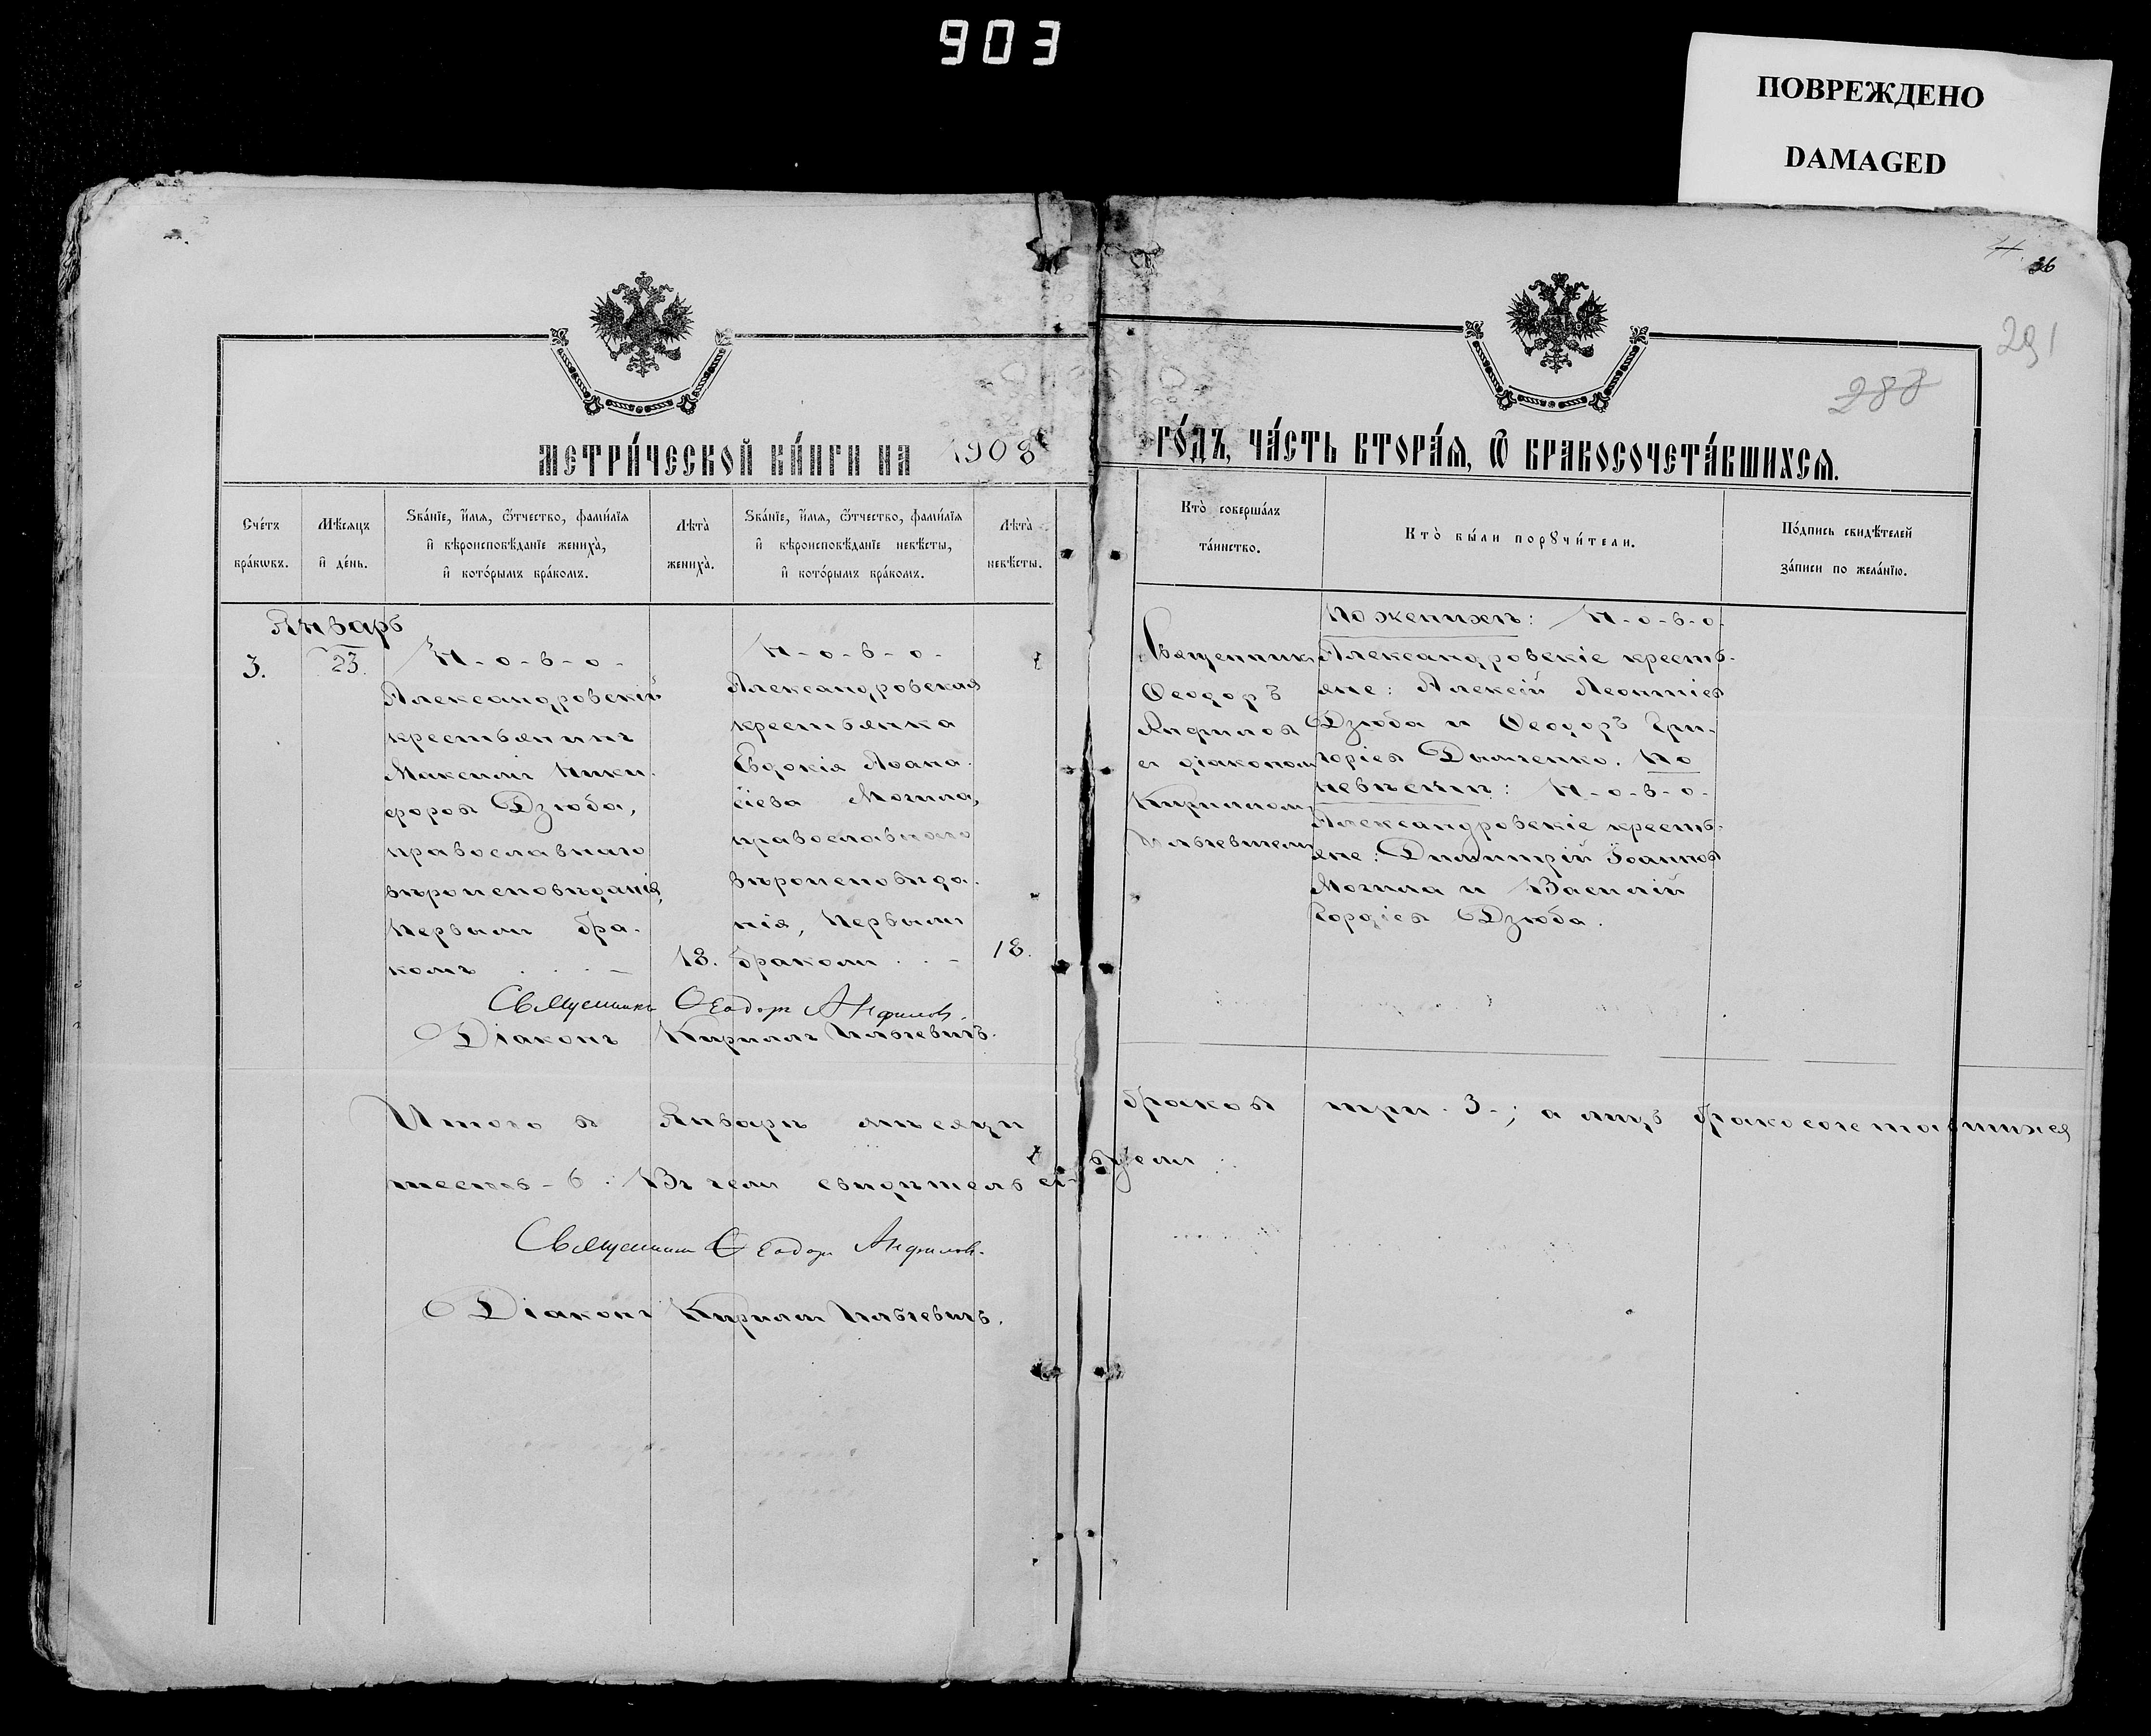 903
ПОВРЕЖДЕНО
DAMAGED
36
291
288
МЕТРИ́ЧЕСКОЙ КНИ́ГИ НА 1908 ГО́ДЪ, ЧА́СТЬ ВТОРА́Я, Ѿ БРАКОСОЧЕТА́ВШИХСЯ.
Сче́тъ
бра́кѡвъ.
Мѣ́сяцъ
и҆ де́нь.
Ѕва́нїе, и҆́мя, ѻ҆́тчество, фами́лїя
и҆ вѣроисповѣ́данїе жениха̀,
и҆ кото́рымъ бра́комъ.
Лѣ́та
жениха̀.
Ѕва́нїе, и҆́мя, ѻ҆́тчество, фами́лїя
и҆ вѣроисповѣ́данїе невѣ́сты,
и҆ кото́рымъ бра́комъ.
Лѣ́та
невѣ́сты.
Кто̀ соверша́лъ
та́инство.
Кто̀ бы́ли порꙋчи́тели.
По́дпись свидѣ́телей
за́писи по жела́нїю.
Январь
3.
23.
Н-о-в-о-
Александровскій
крестьянинъ
Максимъ Ники-
форовъ Дзюба,
православнаго
вѣроисповѣданія,
первымъ бра-
комъ
18.
Н-о-в-о-
Александровская
крестьянка
Евдокія Аѳана-
сіева Могила,
православнаго
вѣроисповѣда-
нія, первымъ
бракомъ
18.
Священникъ
Ѳеодоръ
Анфиловъ
съ діакономъ
Кирилломъ
Ильчевичемъ
По женихѣ: Н-о-в-о-
Александровскіе кресть-
яне: Алексій Леонтіевъ
Дзюба и Ѳеодоръ Гри-
горіевъ Дымченко. По
невѣстѣ: Н-о-в-о-
Александровскіе кресть-
яне: Димитрій Іоанновъ
Могила и Василій
Гордіевъ Дзюба.
Священникъ Ѳеодоръ Анфиловъ.
Діаконъ Кириллъ Ильчевичъ.
Итого въ Январѣ мѣсяцѣ браковъ три - 3 -; а лицъ бракосочетавшихся
шесть - 6. Въ чемъ свидѣтельствуемъ:
Священникъ Ѳеодоръ Анфиловъ.
Діаконъ Кириллъ Ильчевичъ.